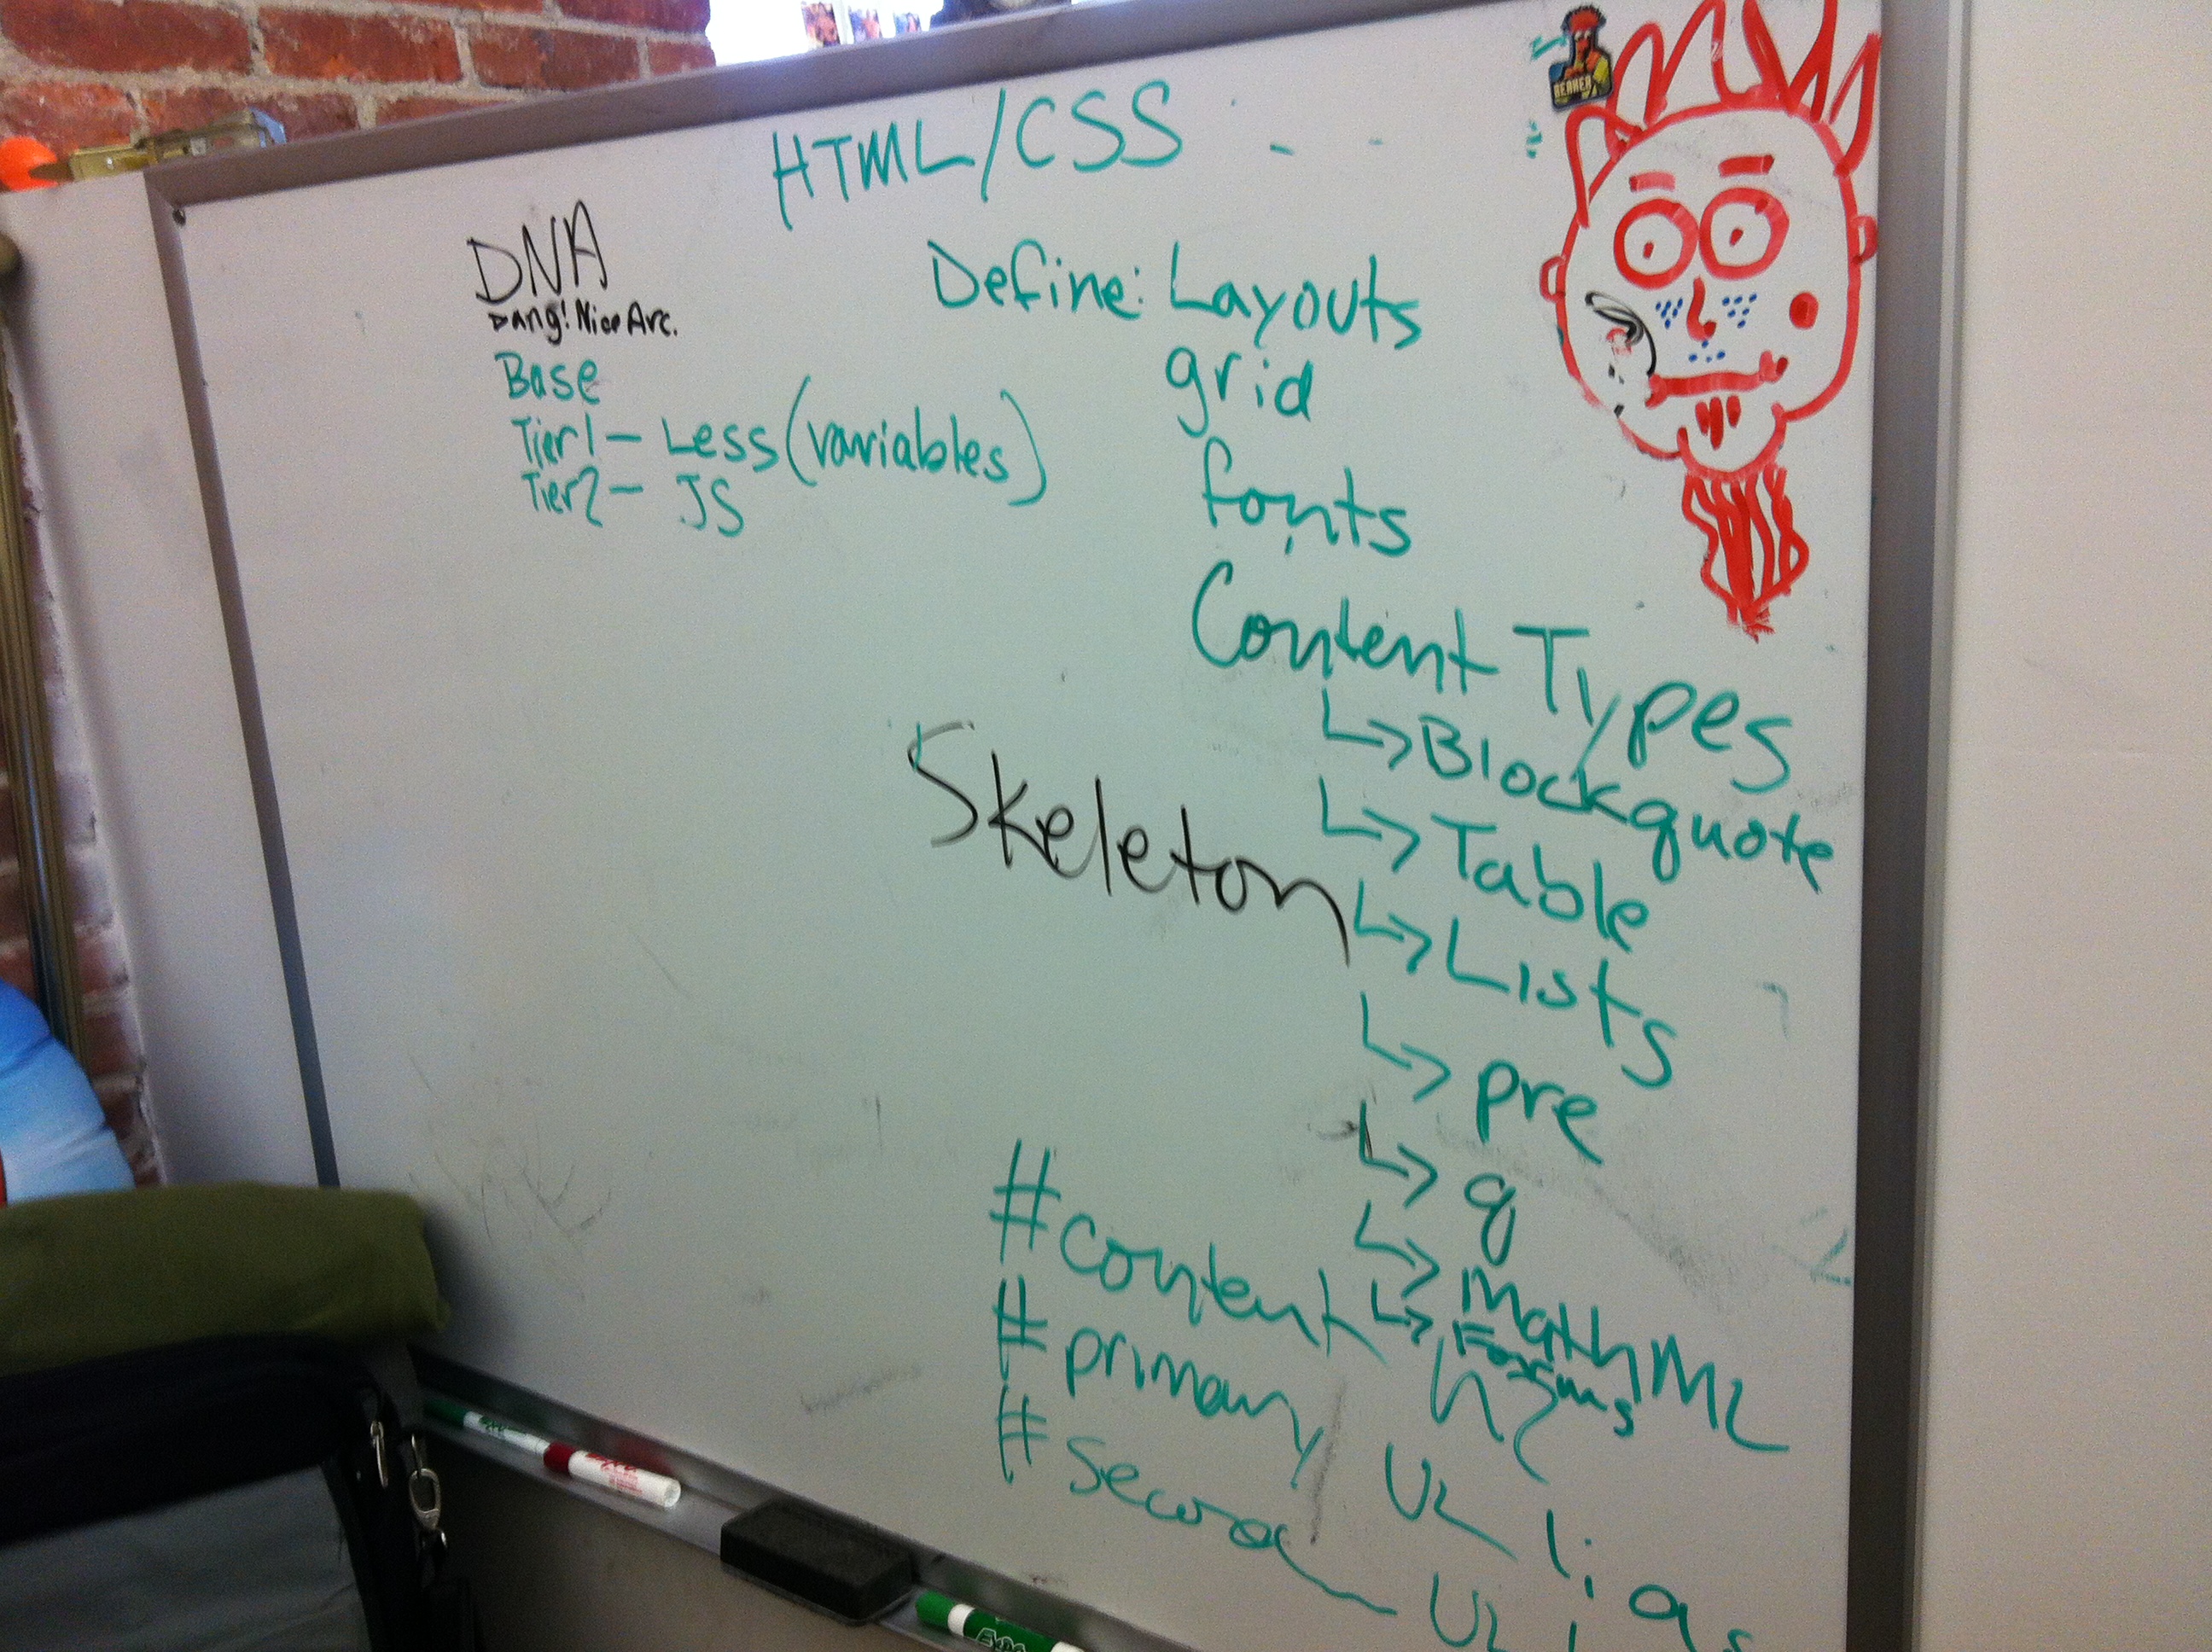 HTML/CSS
BEAKER
DNA
Dang! Nice Arc.
Base
Tier1 - Less (variables)
Tier2 - JS
Define: Layouts
grid
fonts
Content Types
↳ Blockquote
↳ Table
↳ Lists
↳ pre
↳ q
↳ MathML
↳ Forms
Skeleton
#content h2
#primary UL li a
UL